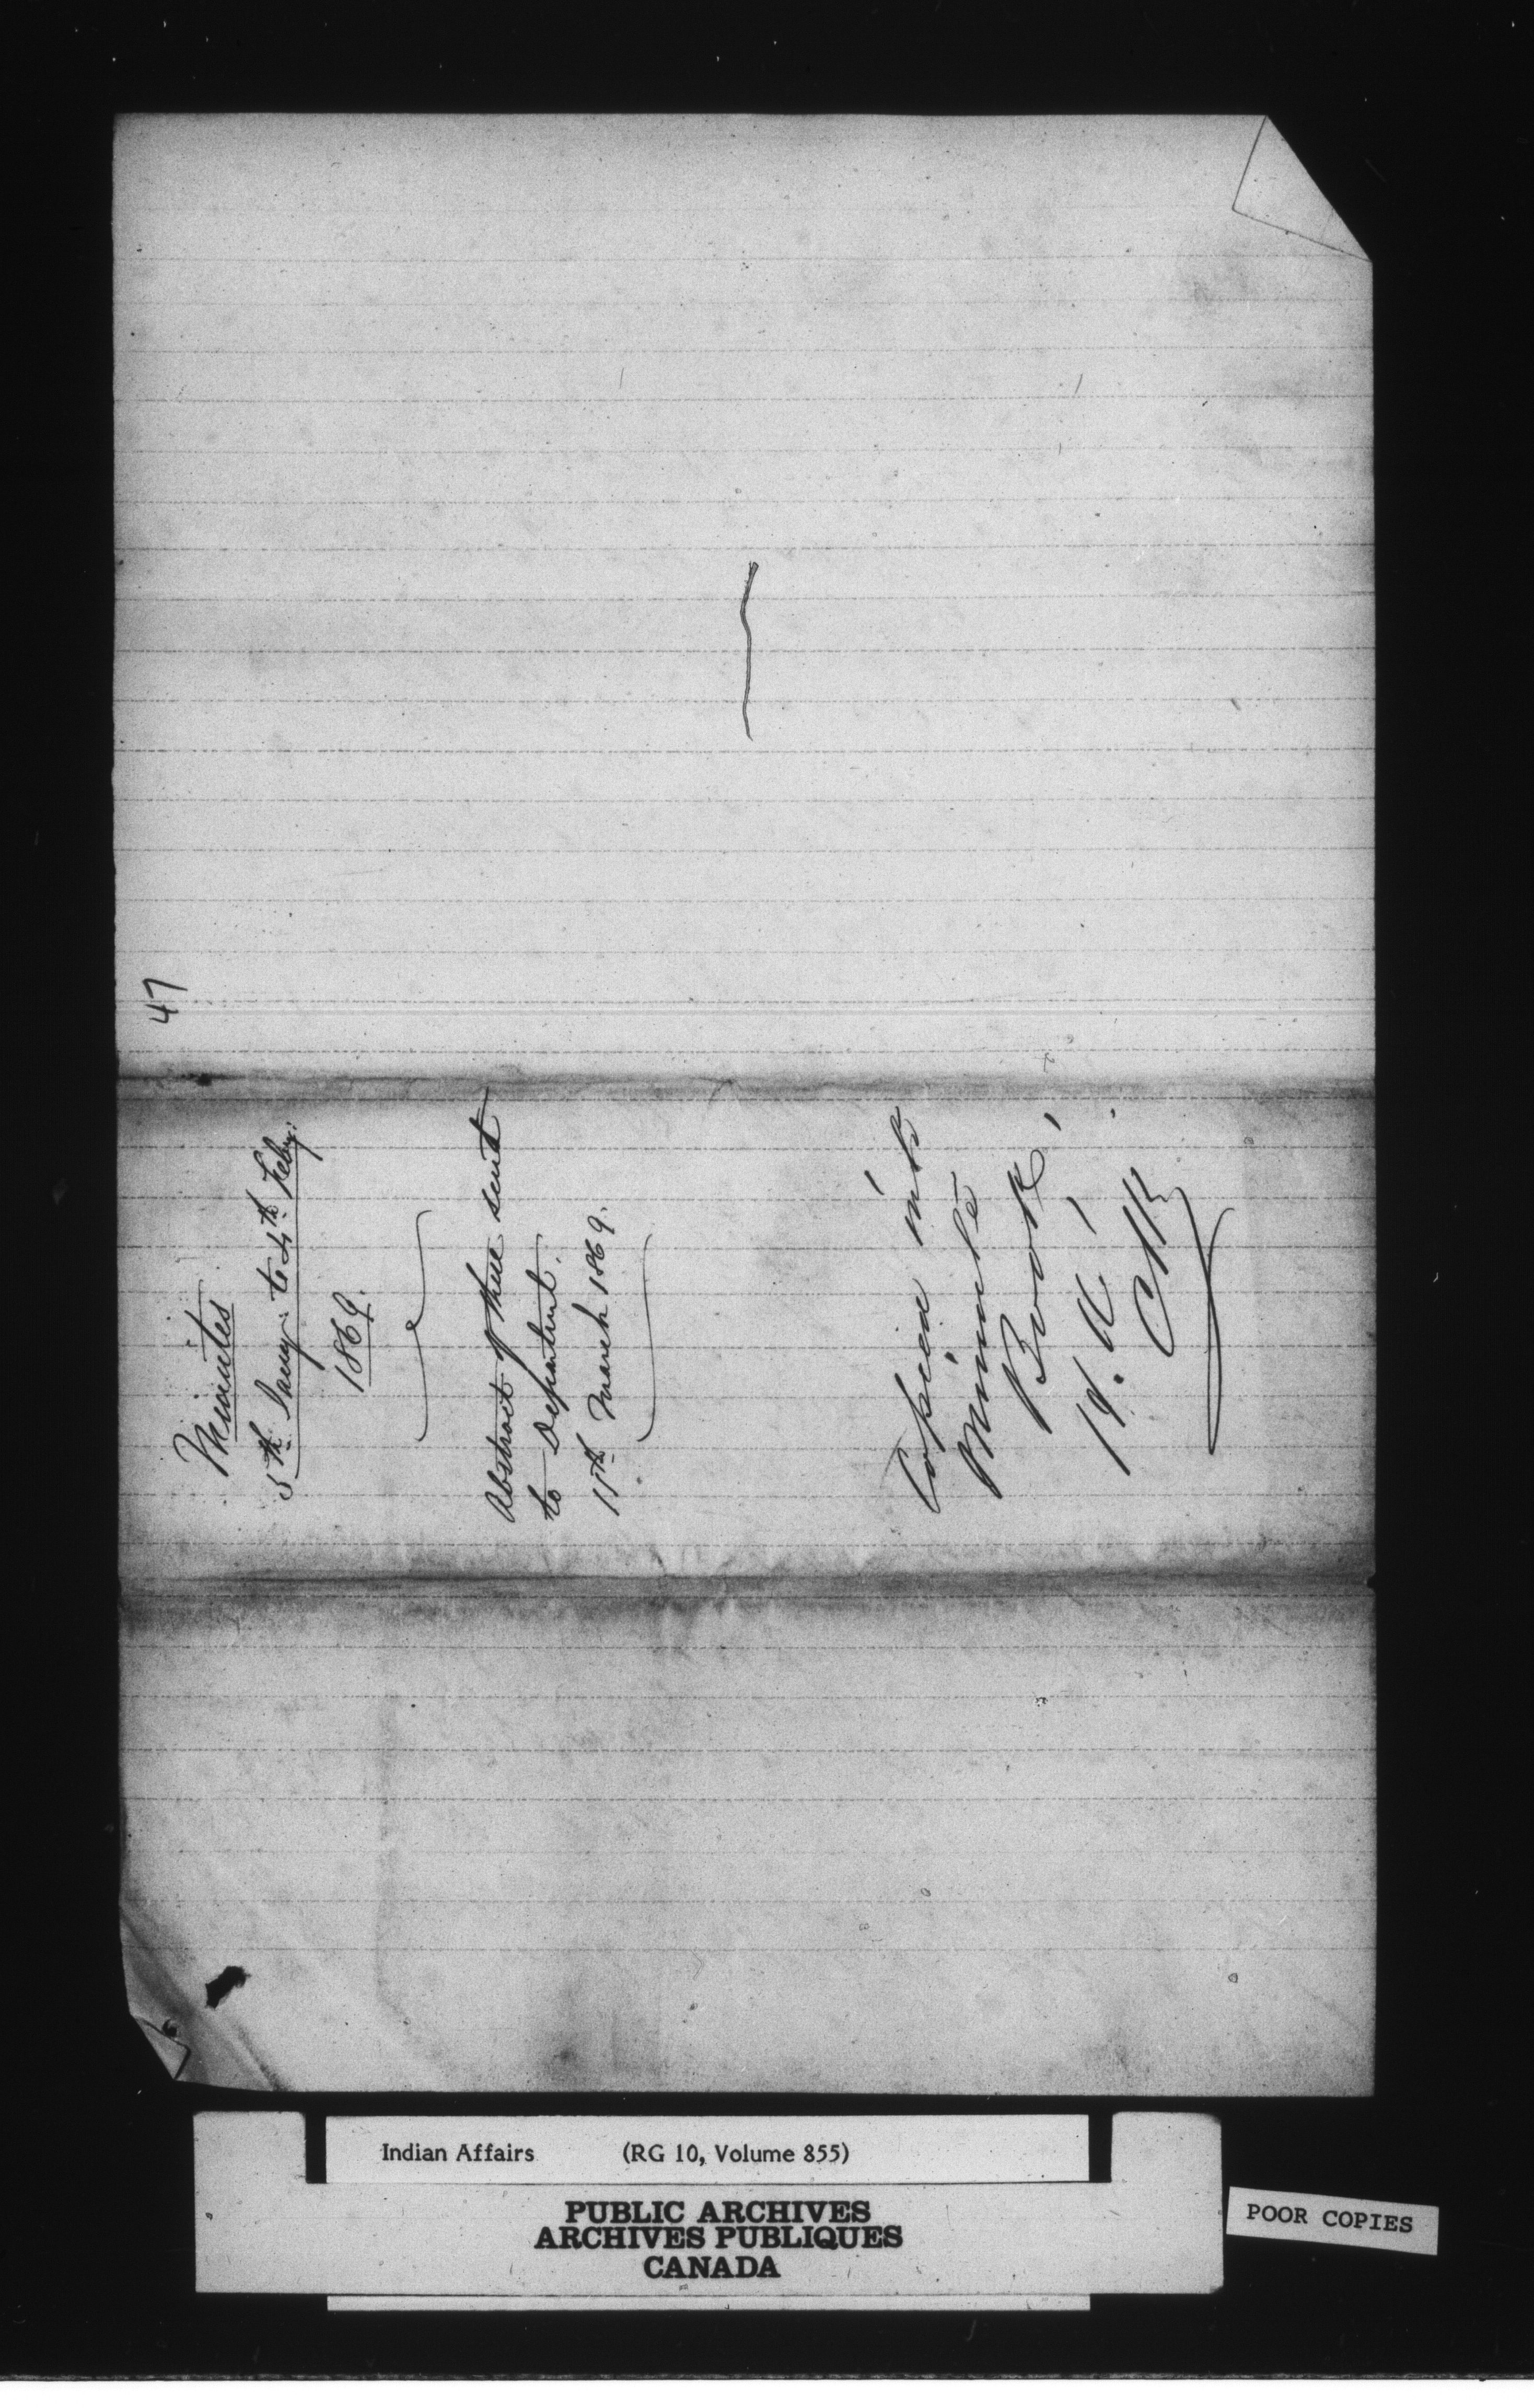 47
Minutes
5th Jany. to 4th Feby.
1869.
Abstract of these sent
to Department.
11th March 1869.
Copied into
Minute
Book
Indian Affairs (RG 10, Volume 855)
PUBLIC ARCHIVES
ARCHIVES PUBLIQUES
CANADA
POOR COPIES